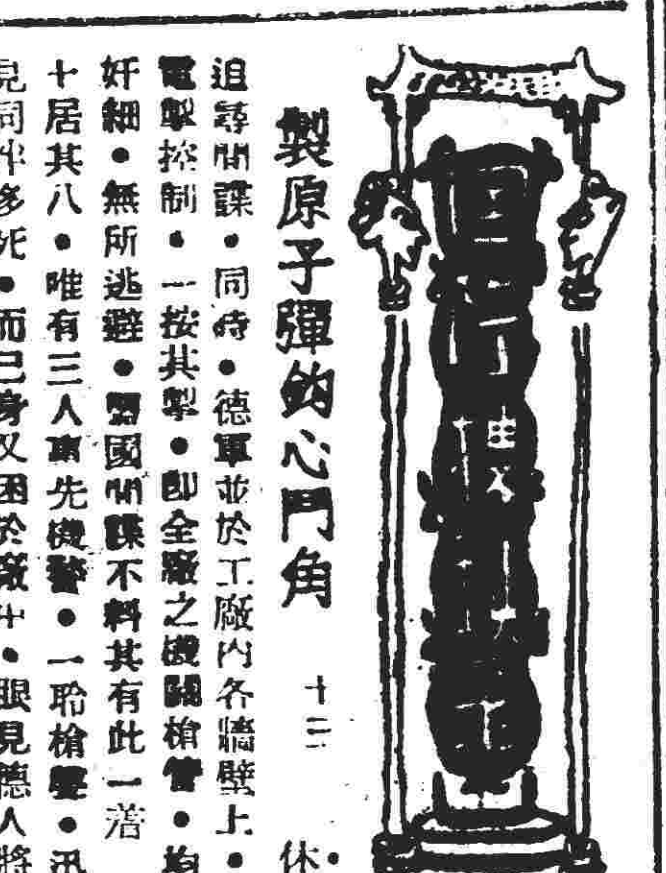 製原子彈鈎心鬥角
十二
休
追尋間諜・同時・德軍並於工廠內各牆壁上・
電掣控制・一按其掣・即全廠之機關槍管・均
奸細・無所逃避・盟國間諜不料其有此一着
十居其八・唯有三人事先機警・一聆槍聲・汛
見同伴多死・而己身又困於廠中・眼見德人將